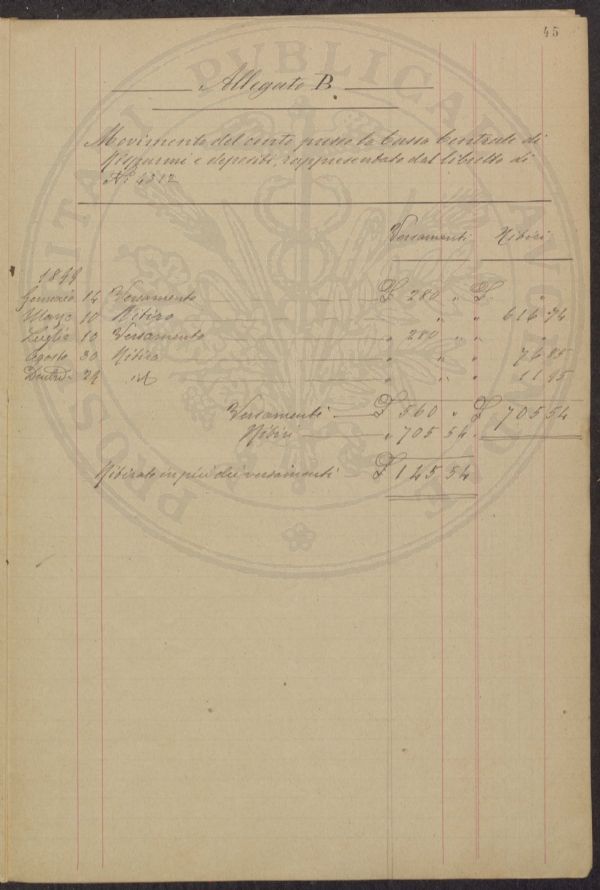 45
Allegato B.
Movimento del conto presso la Cassa Centrale di
Risparmi e depositi, rappresentato dal libretto di
N.º 4312
Versamenti Ritiri
1899
Gennaio 14 Versamento £ 280 " £ " "
Marzo 10 Ritiro " " " 616 74
Luglio 10 Versamento " 280 " " "
Agosto 30 Ritiro " " " 76 85
29 id " " " 11 95
Versamenti £ 560 " £ 705 54
Ritiri " 705 54
Ritirato in più dei versamenti £ 145 54
PROSPERITATI PUBLICAE